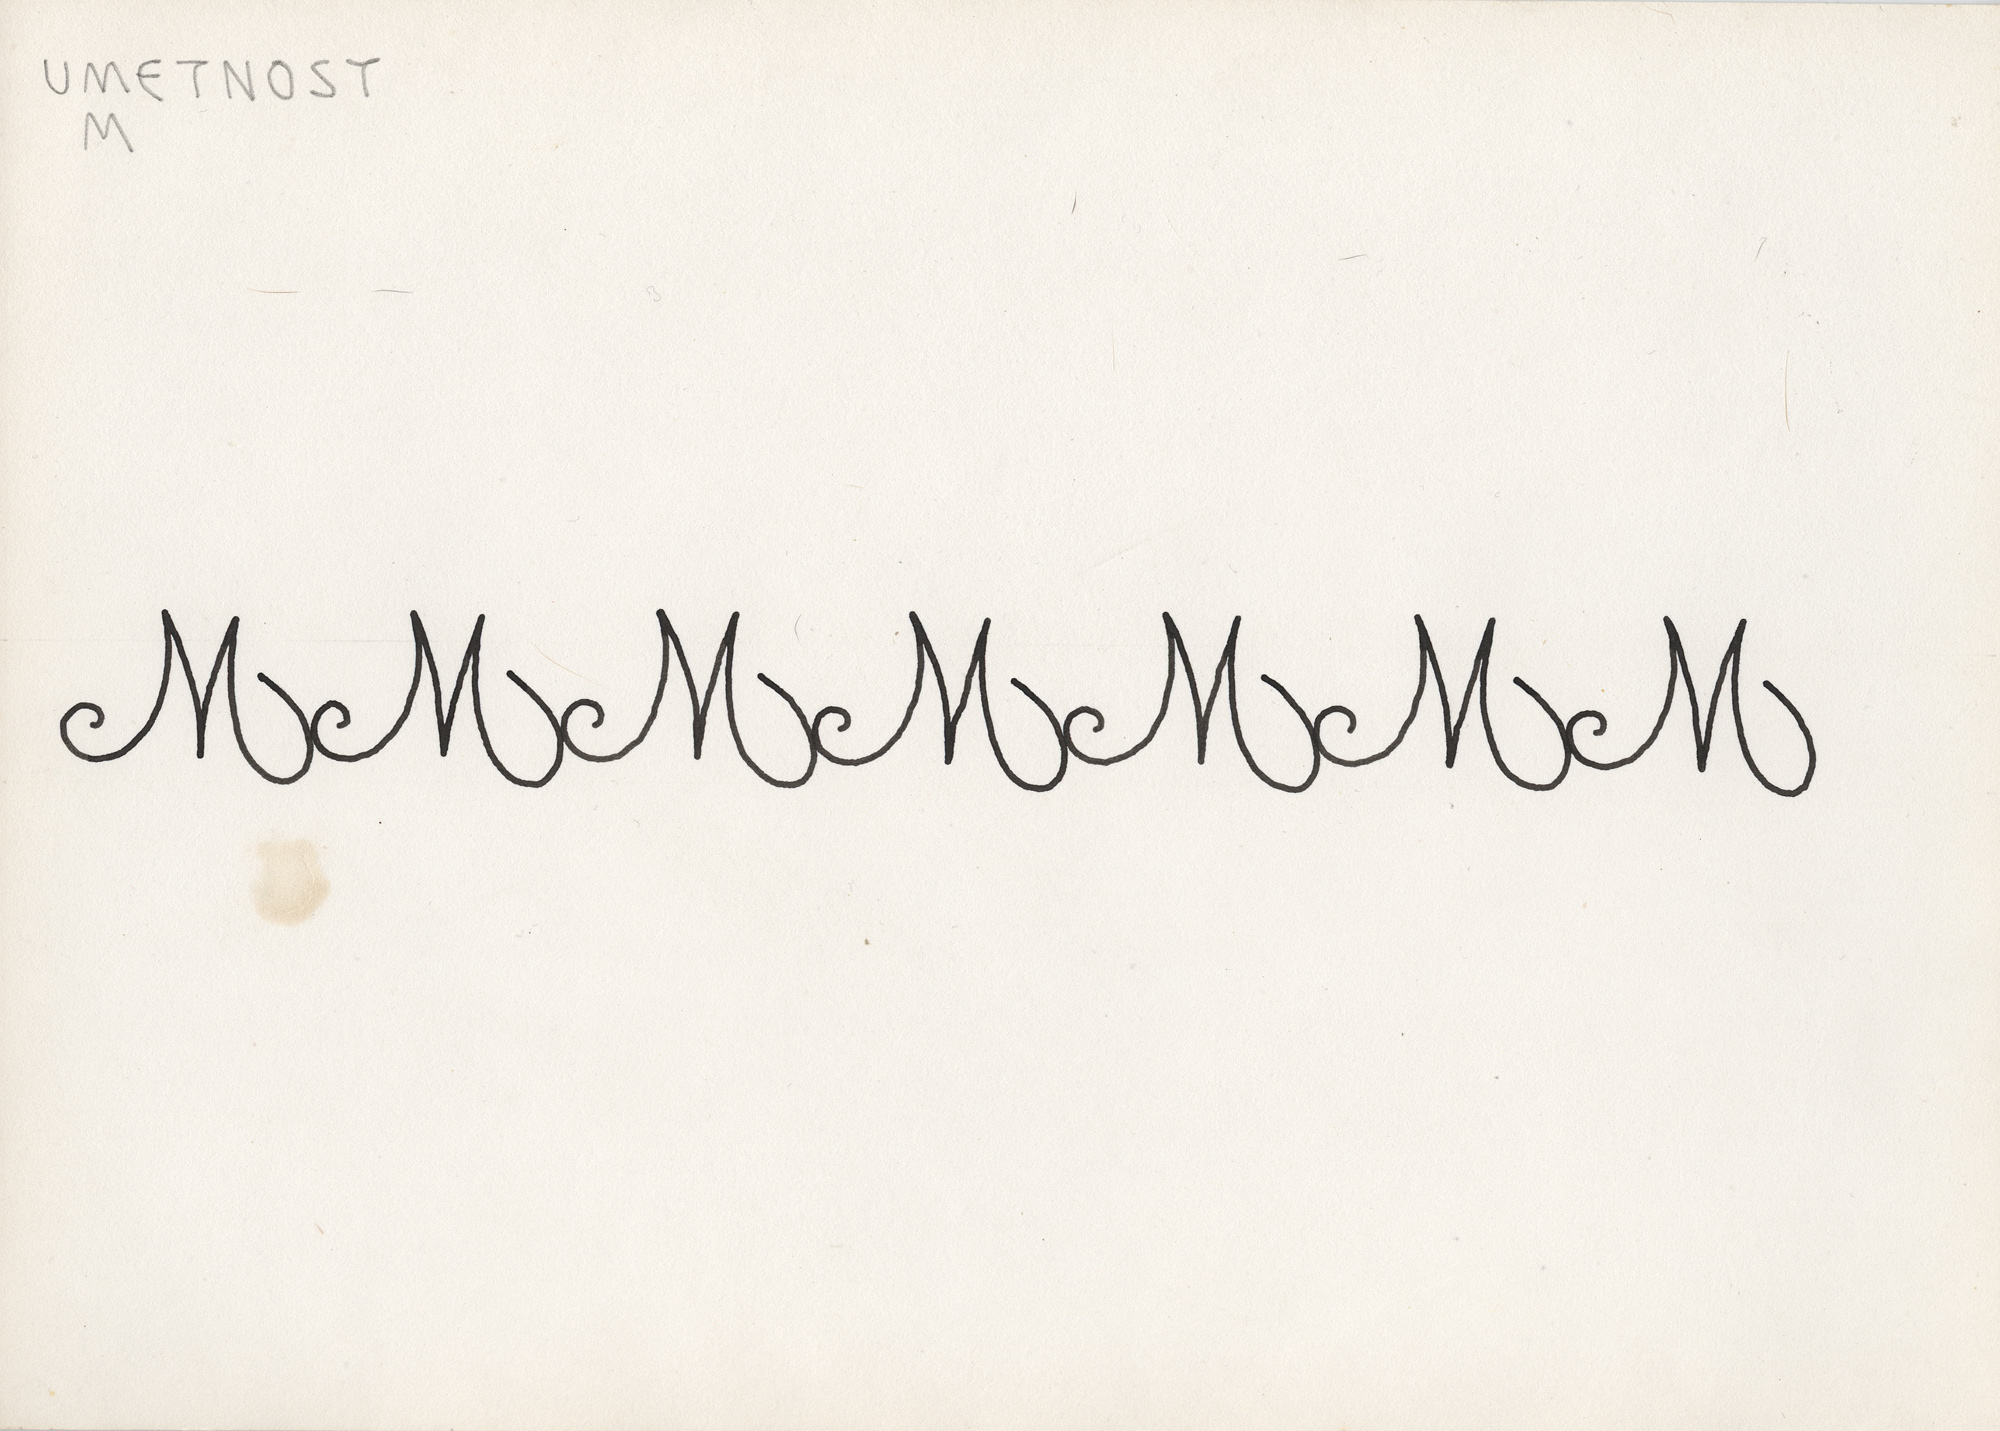 UMETNOST
M
MMMMMMM